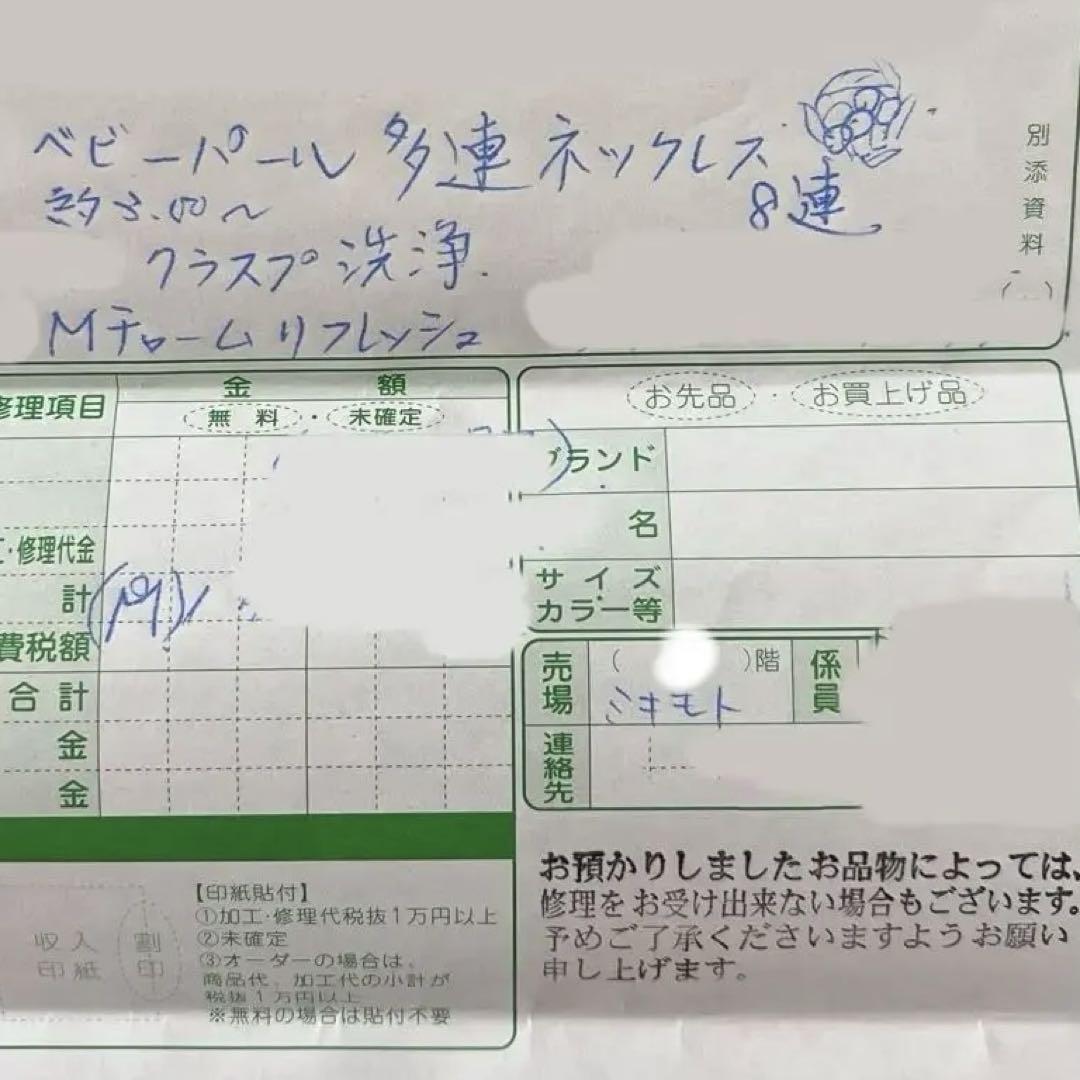 ベビーパール 多連 ネックレス
8連
約3.00〜
クラスプ 洗浄.
Mチャーム リフレッシュ
別添資料
( )
修理項目
金 額
無 料 ・ 未確定
・修理代金
計
費税額
合 計
金
金
お先品 ・ お買上げ品
ブランド
名
サ イ ズ
カラー等
売場
( )階
ミキモト
係員
連絡先
収 入
印 紙
割
印
【印紙貼付】
①加工・修理代税抜1万円以上
②未確定
③オーダーの場合は、
商品代、加工代の小計が
税抜1万円以上
※無料の場合は貼付不要
お預かりしましたお品物によっては、
修理をお受け出来ない場合もございます。
予めご了承くださいますようお願い
申し上げます。